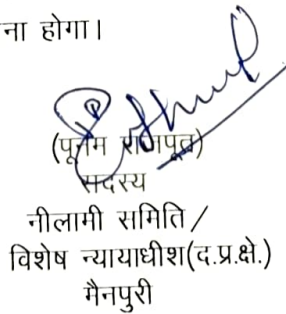 ना होगा।
(पूनम राजपूत)
सदस्य
नीलामी समिति/
विशेष न्यायाधीश(द.प्र.क्षे.)
मैनपुरी